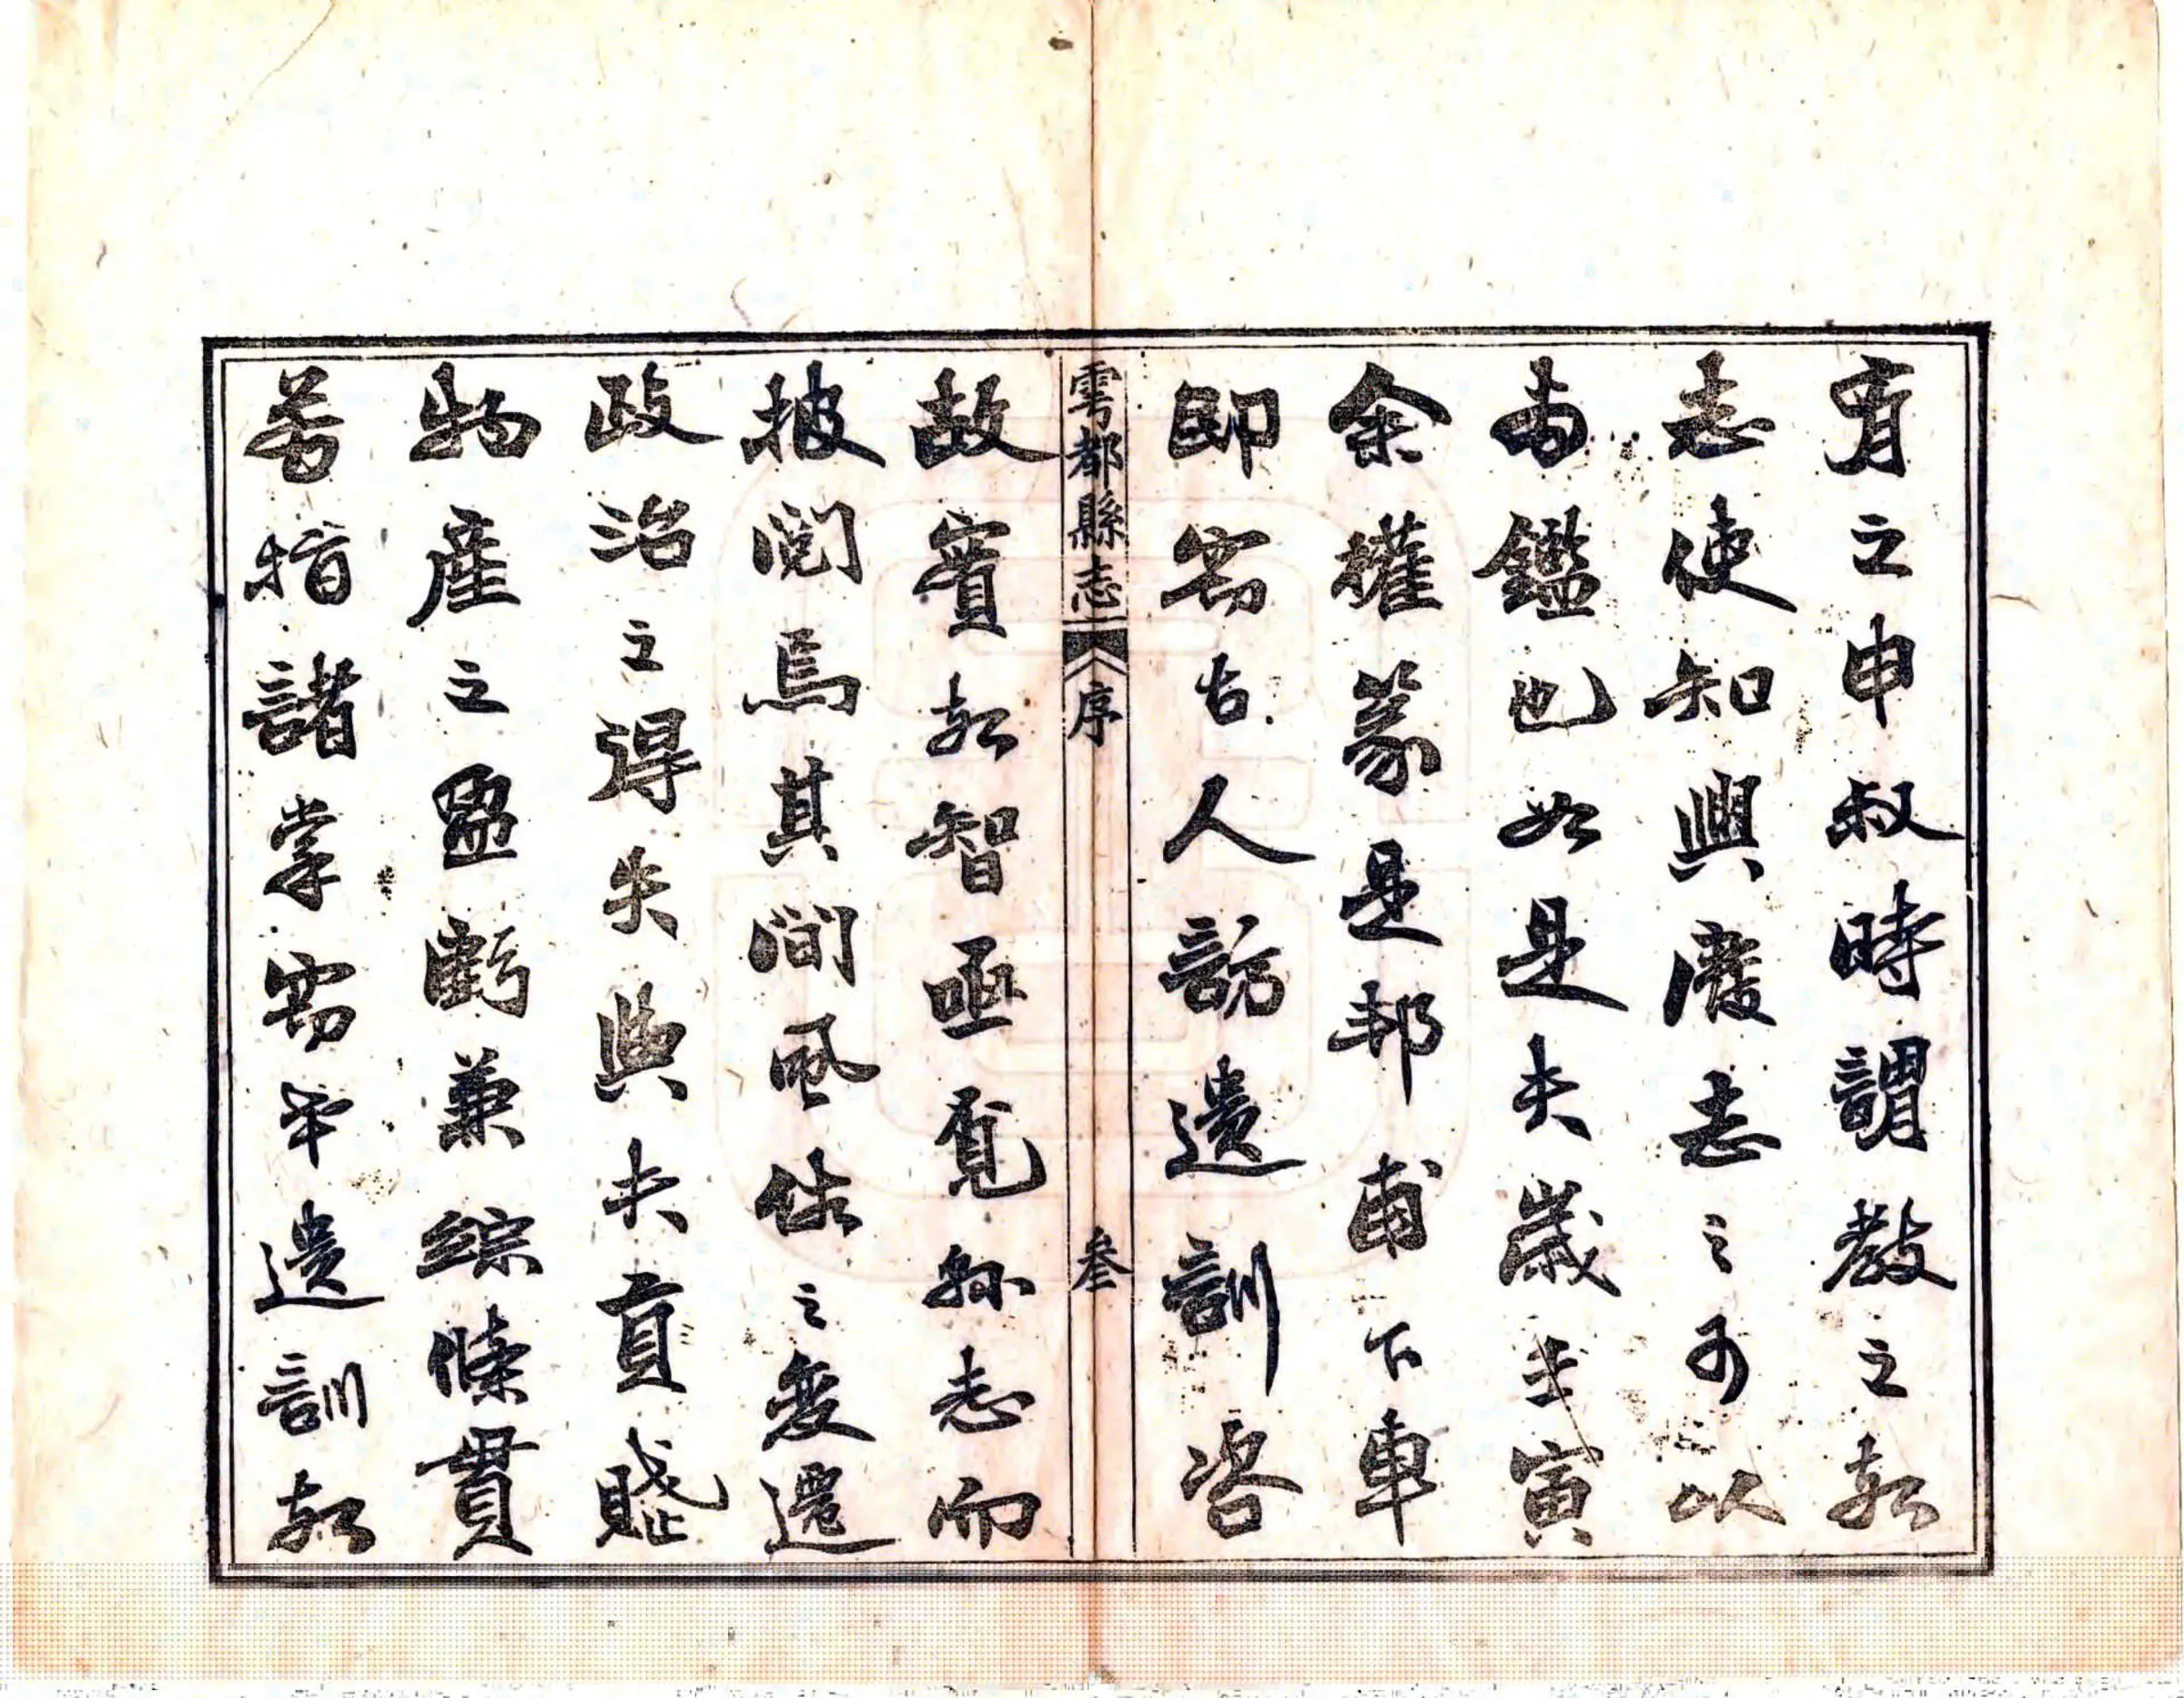 有之申叔時謂教之於
志使知興廢志之可以
為鑑也如是夫歲壬寅
余權篆是邦甫下車
即竊古人訪遺訓咨
雩都縣志 序 叁
故實於智亟覓縣志而
披閱焉其間風俗之變遷
政治之得失與夫貢賦
物產之盈虧兼綜條貫
若指諸掌竊幸遺訓於